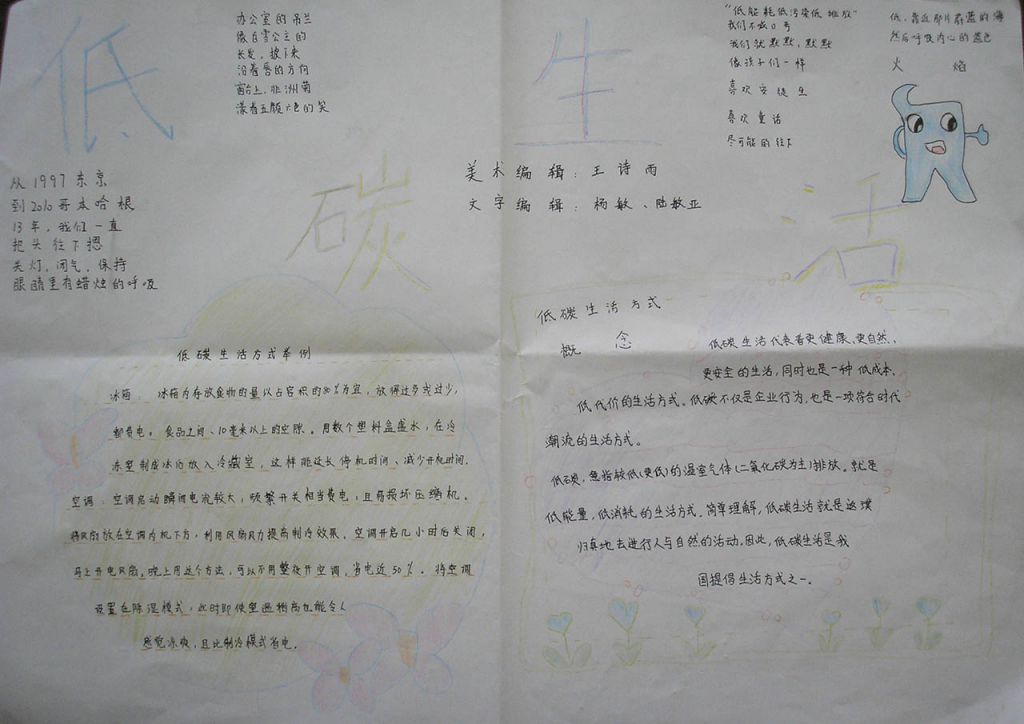 低
碳
生
活
办公室的吊兰
像白雪公主的
长发，披下来
沿着唇的方向
窗台上，非洲菊
漾着五颜六色的笑
"低能耗低污染低排放"
我们不喊口号
我们就默默，默默
像孩子们一样
喜欢安徒生
喜欢童话
尽可能的往下
低，靠近那片蔚蓝的海
然后呼吸内心的蓝色
火焰
从1997东京
到2010哥本哈根
13年，我们一直
把头往下摁
关灯，闭气，保持
眼睛里有蜡烛的呼吸
美术编辑：王诗雨
文字编辑：杨敏、陆敏亚
低碳生活方式举例
冰箱：冰箱内存放食物的量以占容积的80%为宜，放得过多或过少，
都费电。食品之间、10毫米以上的空隙。用数个塑料盒盛水，在冷
冻室制成冰后放入冷藏室，这样能延长停机时间、减少开机时间.
空调：空调启动瞬间电流较大，频繁开关相当费电，且易损坏压缩机。
将风扇放在空调内机下方，利用风扇风力提高制冷效果。空调开启几小时后关闭，
马上开电风扇。晚上用这个方法，可以不用整夜开空调，省电近50%。将空调
设置在除湿模式，此时即使室温稍高也能令人
感觉凉爽，且比制冷模式省电。
低碳生活方式
概念
低碳生活代表着更健康、更自然、
更安全的生活，同时也是一种低成本、
低代价的生活方式。低碳不仅是企业行为，也是一项符合时代
潮流的生活方式。
低碳，意指较低(更低)的温室气体(二氧化碳为主)排放。就是
低能量，低消耗的生活方式。简单理解，低碳生活就是返璞
归真地去进行人与自然的活动。因此，低碳生活是我
国提倡生活方式之一。